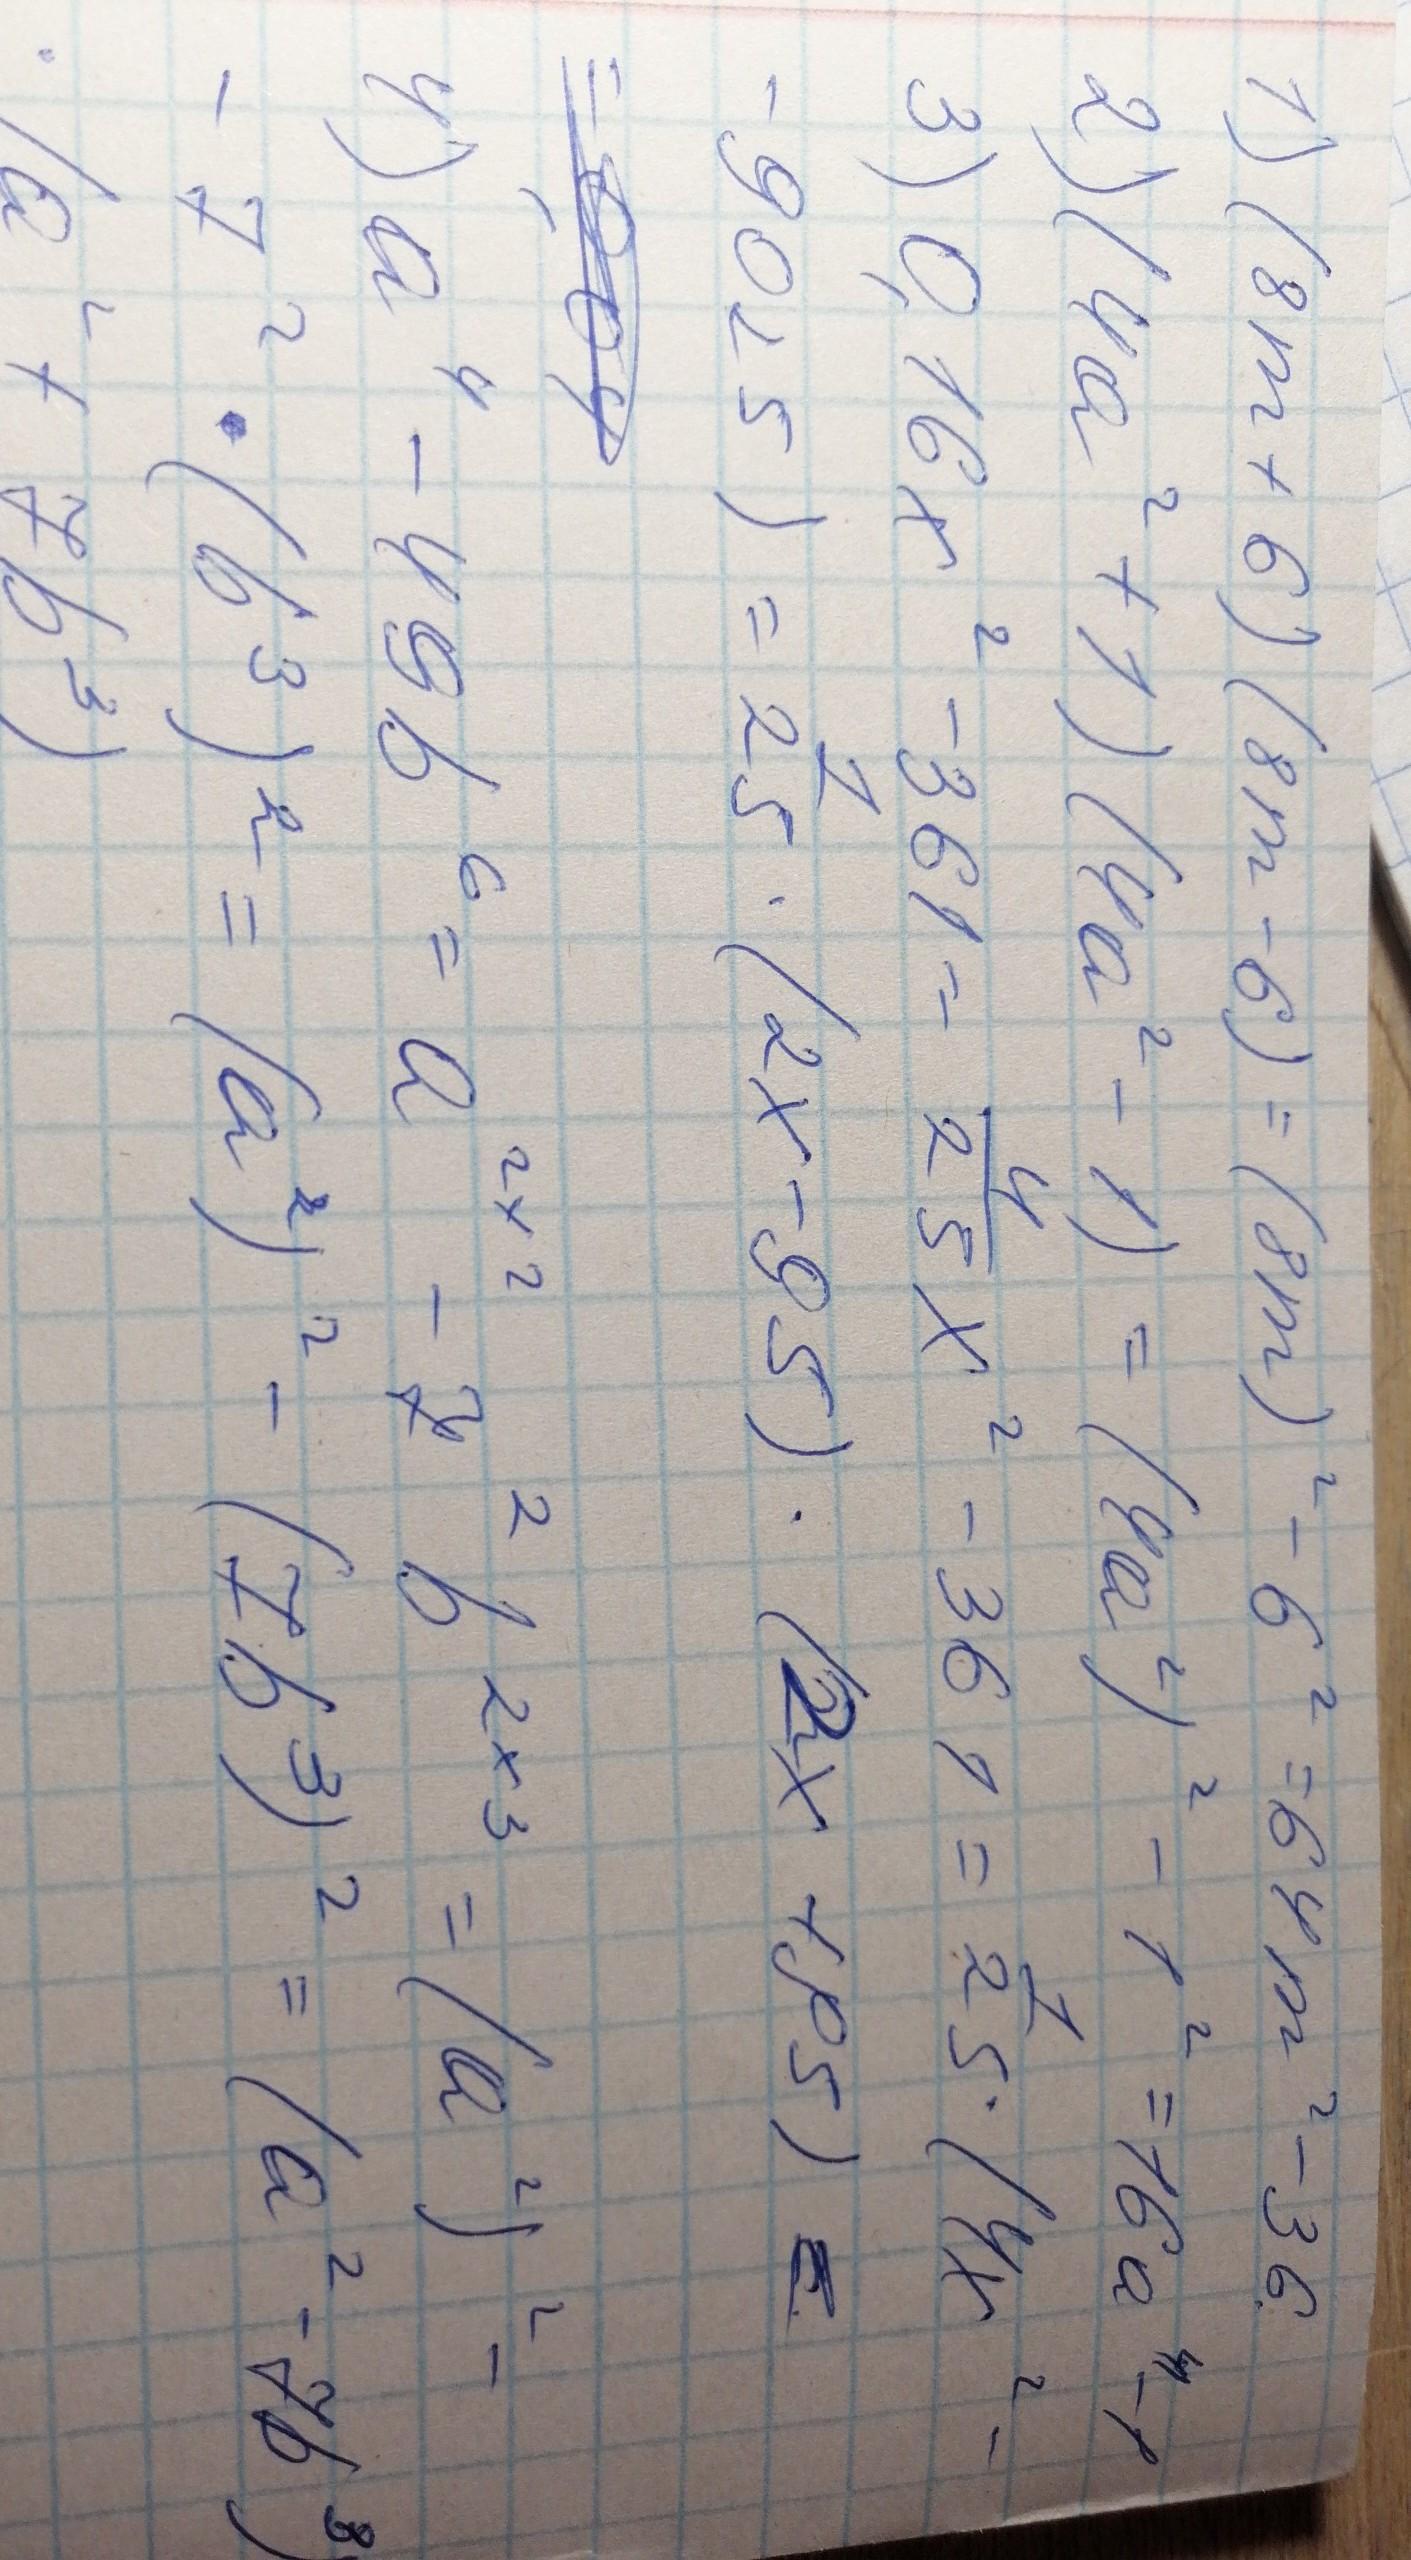 1) (8m + 6) (8m - 6) = (8m)² - 6² = 64m² - 36
2) (4a² + 1) (4a² - 1) = (4a²)² - 1² = 16a⁴ - 1
3) 0,16x² - 361 = 4/25 x² - 361 = 1/25 · (4x² -
- 9025) = 1/25 · (2x - 95) · (2x + 95) =
4) a⁴ - 49b⁶ = a²ˣ² - 7² b²ˣ³ = (a²)² -
- 7² · (b³)² = (a²)² - (7b³)² = (a² - 7b³)
· (a² + 7b³)